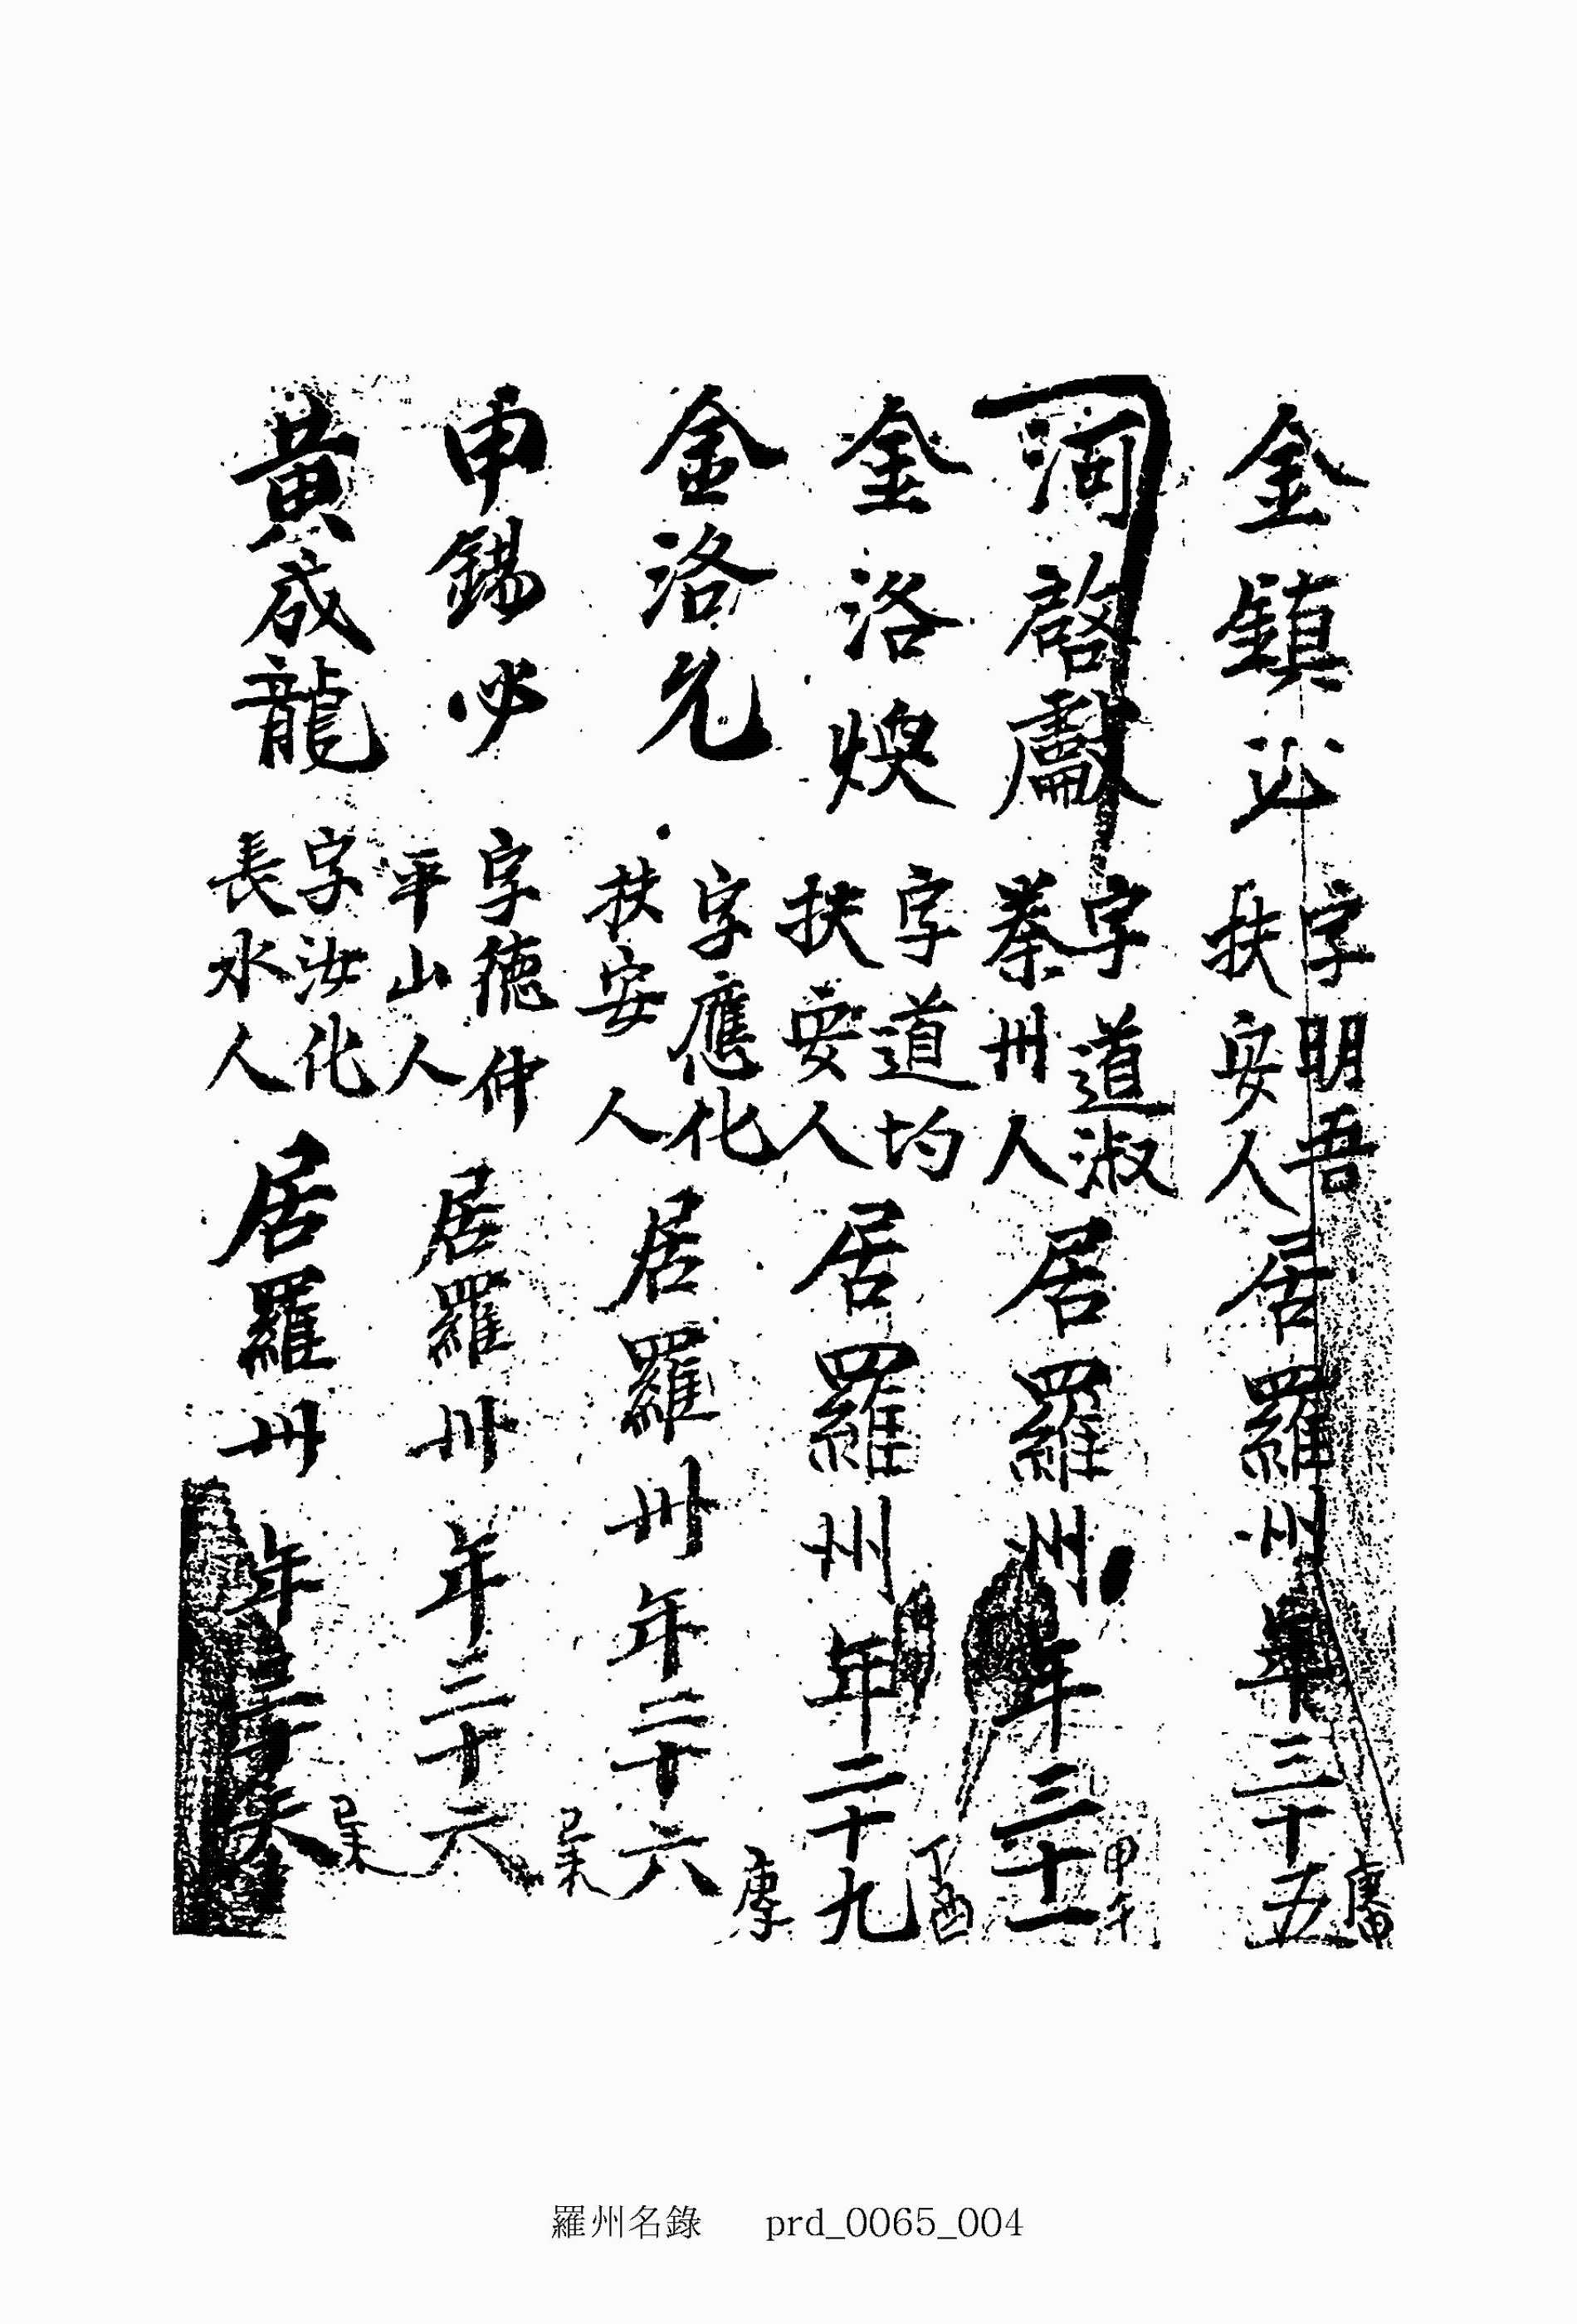 金鎮
字明吾
扶安人
居羅州 年三十五
庚申
河啓獻
字道淑
州人
居羅州 年三十一
甲午
金洛煥
字道均
扶安人
居羅州 年二十九
丁酉
金洛允
字應化
扶安人
居羅州 年二十六
庚子
申錫必
字德仲
平山人
居羅州 年二十六
己未
黃成龍
字汝化
長水人
居羅州 年
己未
羅州名錄 prd_0065_004